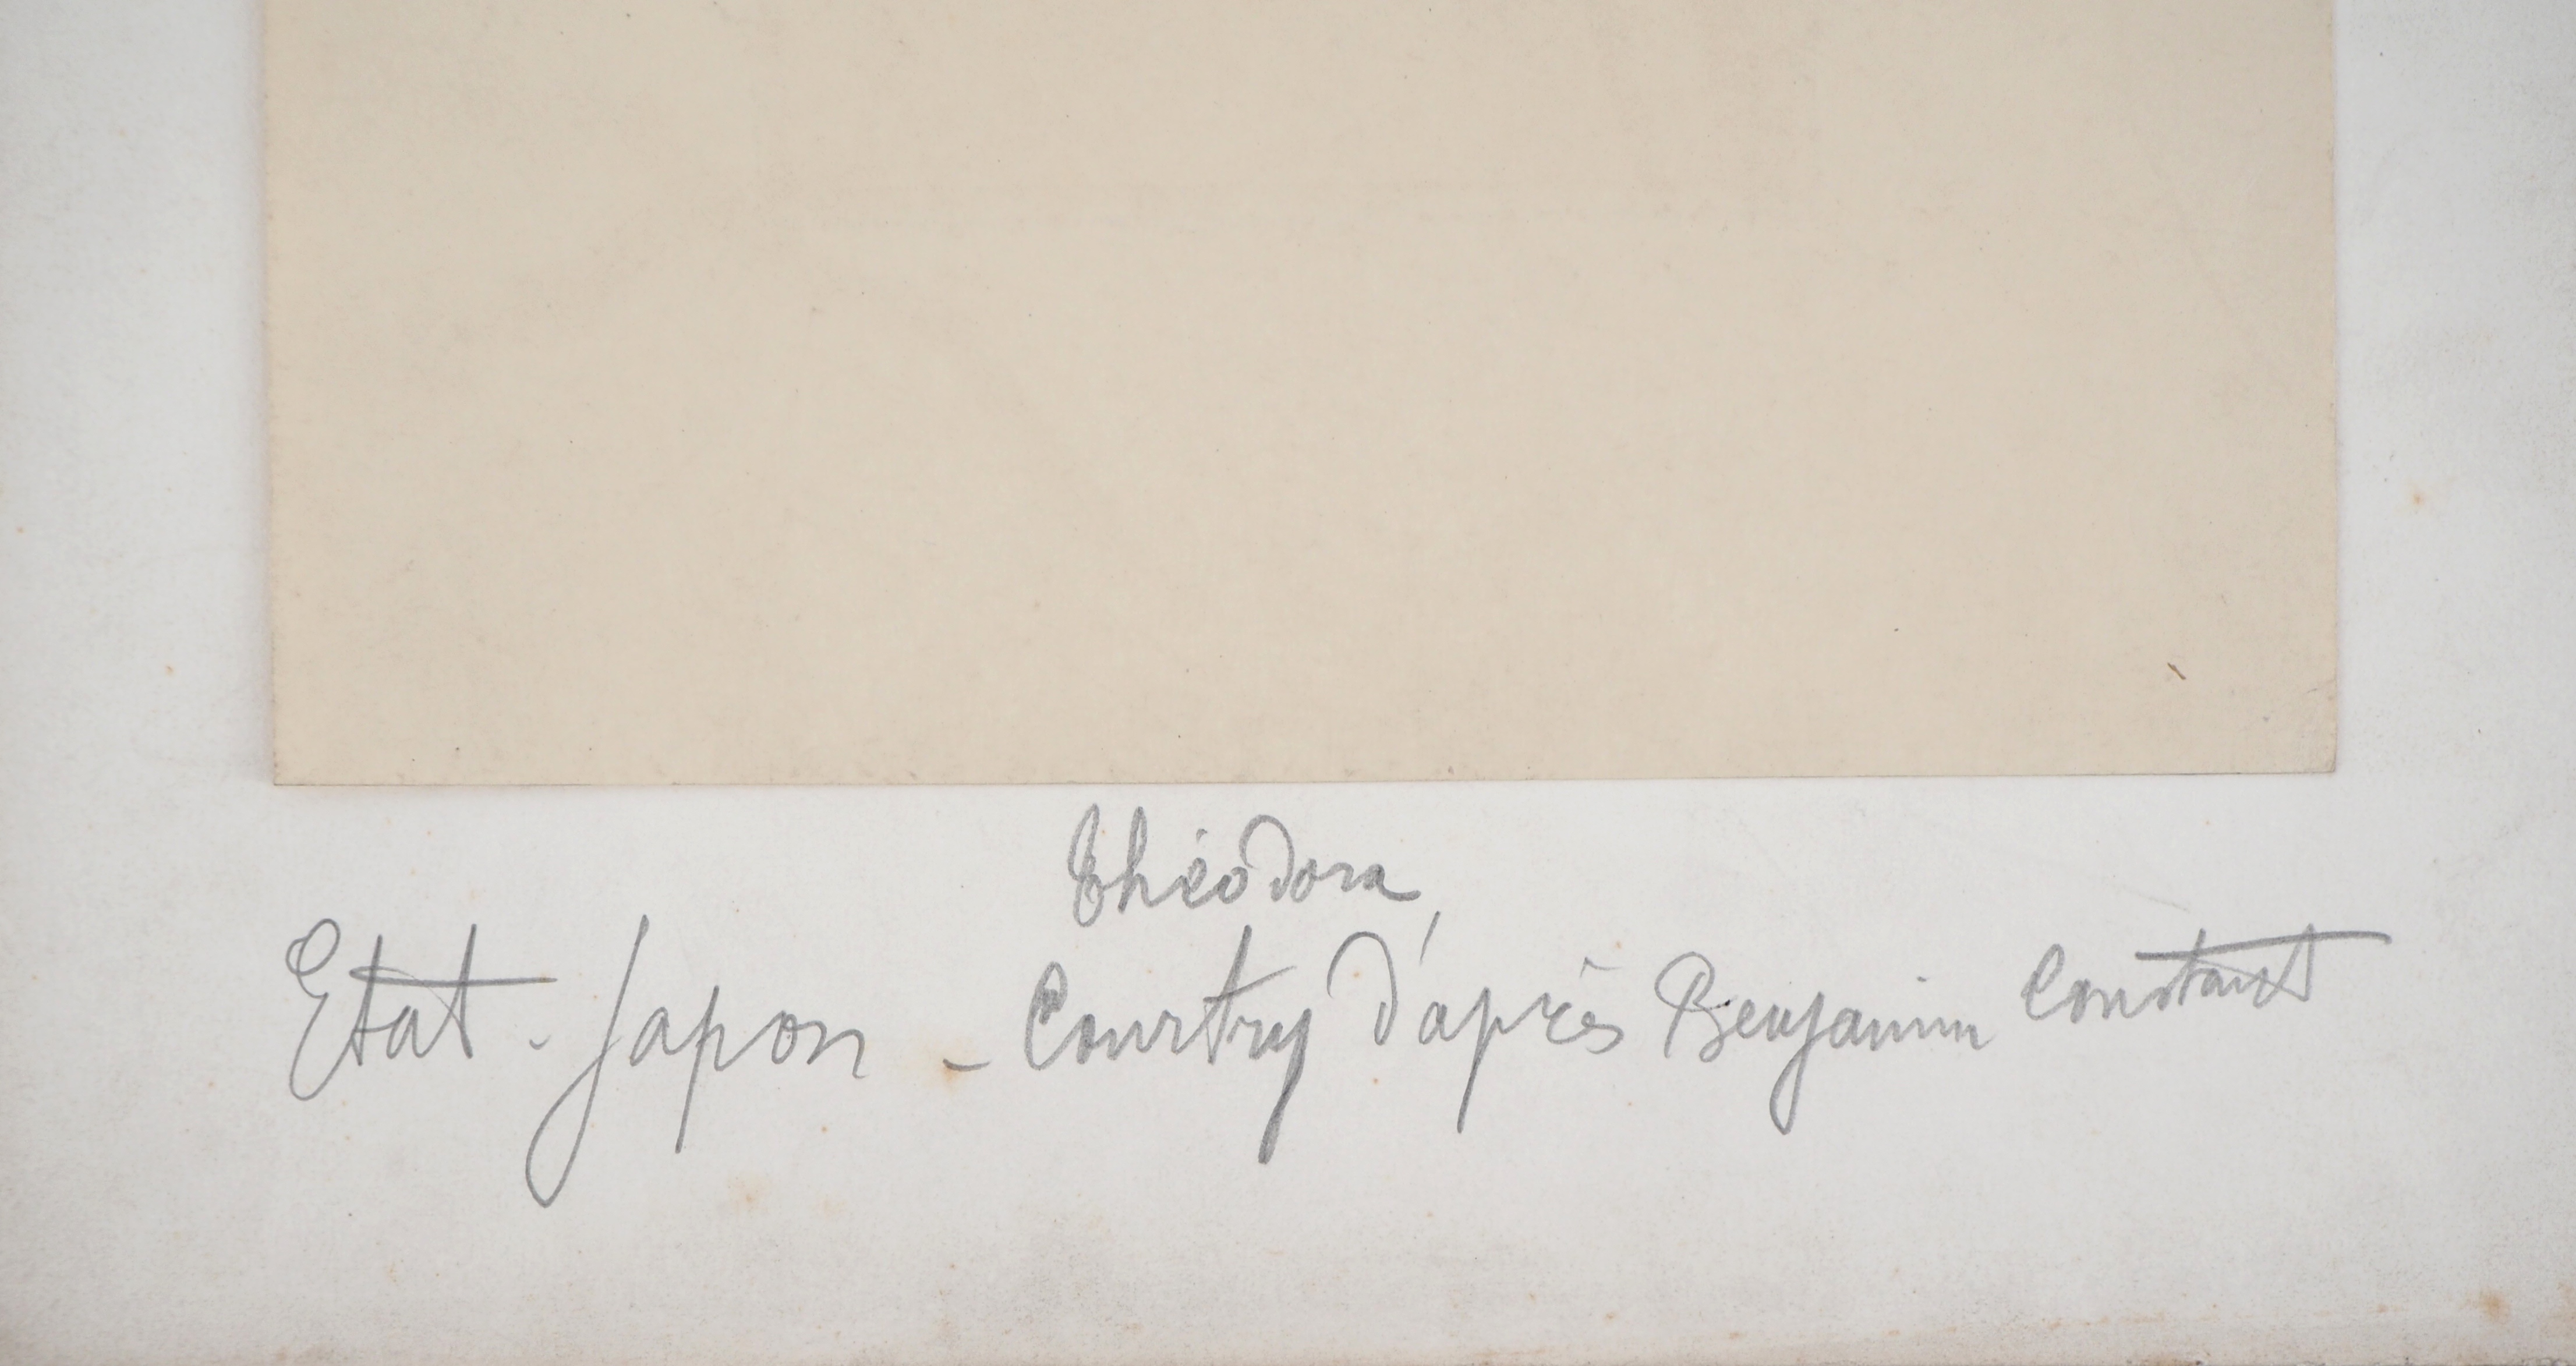 Théodora
Etat - Japon - Courtry d'après Benjamin Constant